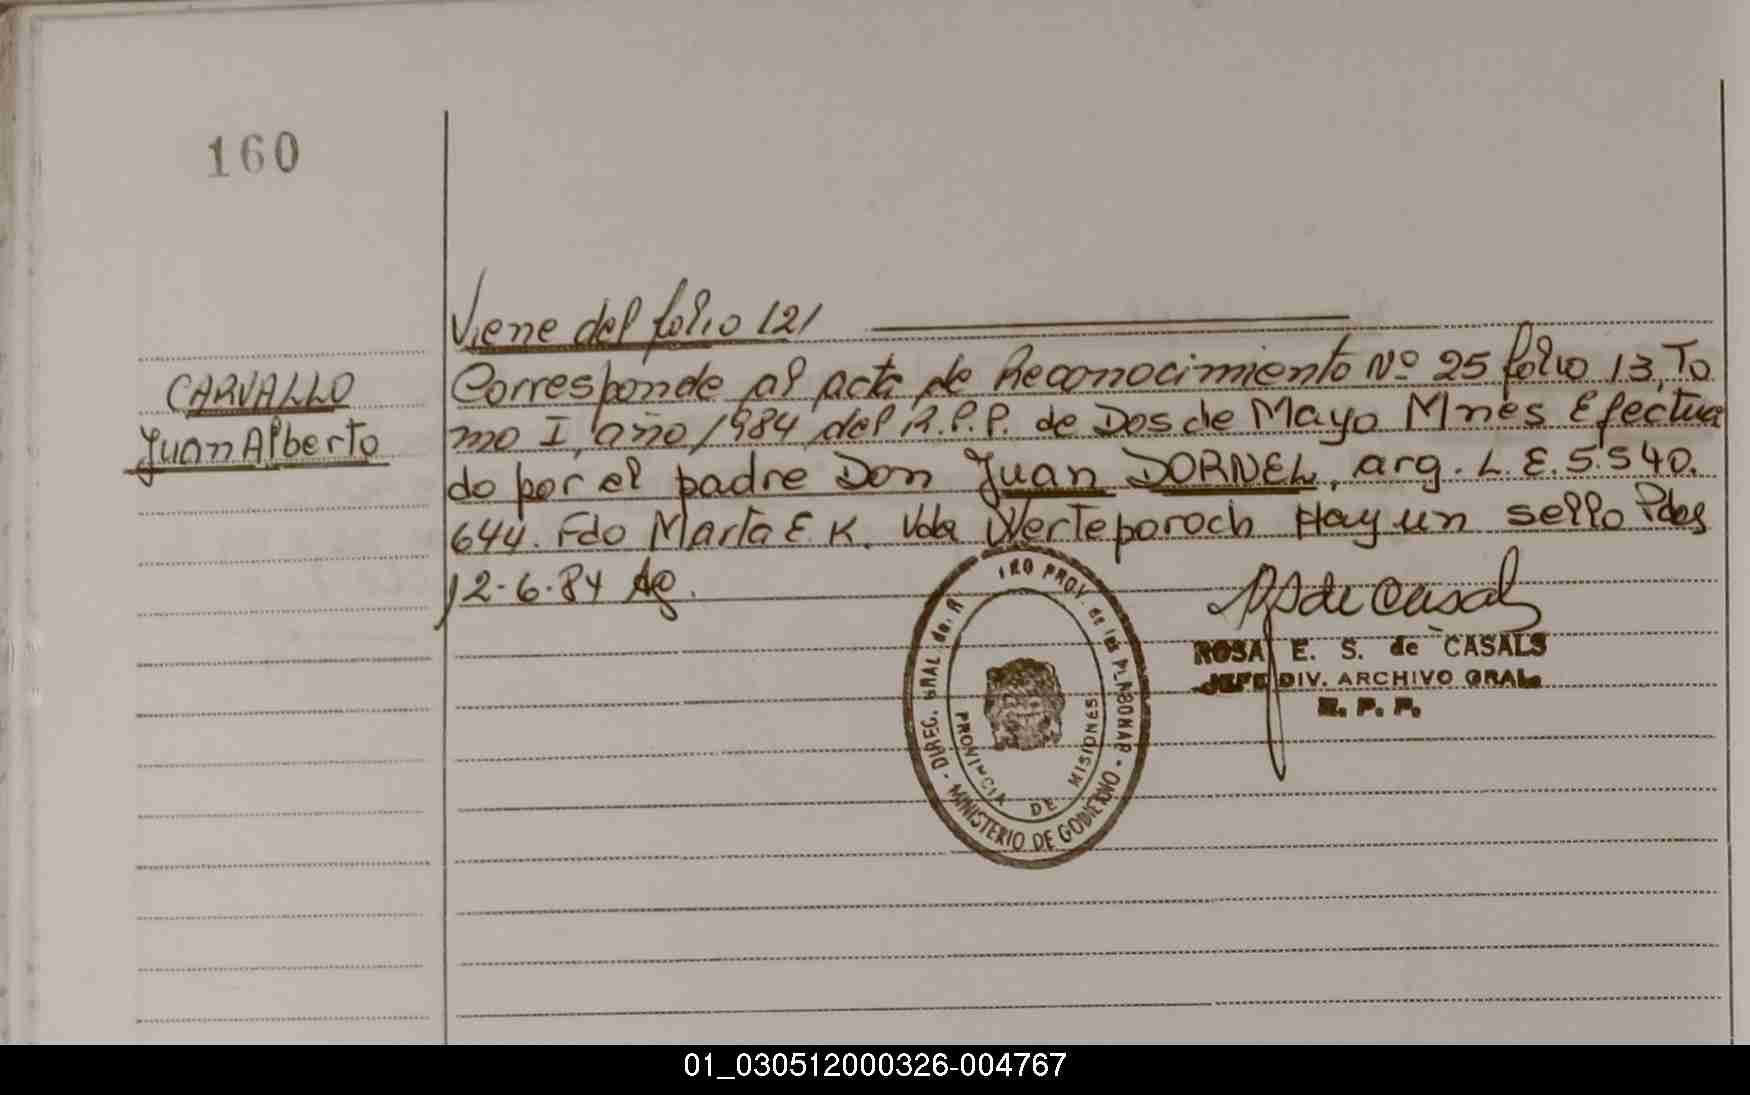 160
Viene del folio 121
CARVALLO
Juan Alberto
Corresponde al acta de Reconocimiento Nº 25 folio 13, To
mo I, año 1984 del R.P.P. de Dos de Mayo Mnes Efectua
do por el padre Don Juan DORNEL, arg. L.E. 5.540.
644. Fdo Marta E. K. Vda Werteporoch Hay un sello Pdas
12-6-84
DIREC. GRAL de. R PROV. de las
MINISTERIO DE GOBIERNO
PROVINCIA DE MISIONES
ROSA E. S. de CASALS
JEFE DIV. ARCHIVO GRAL.
R. P. P.
01_030512000326-004767